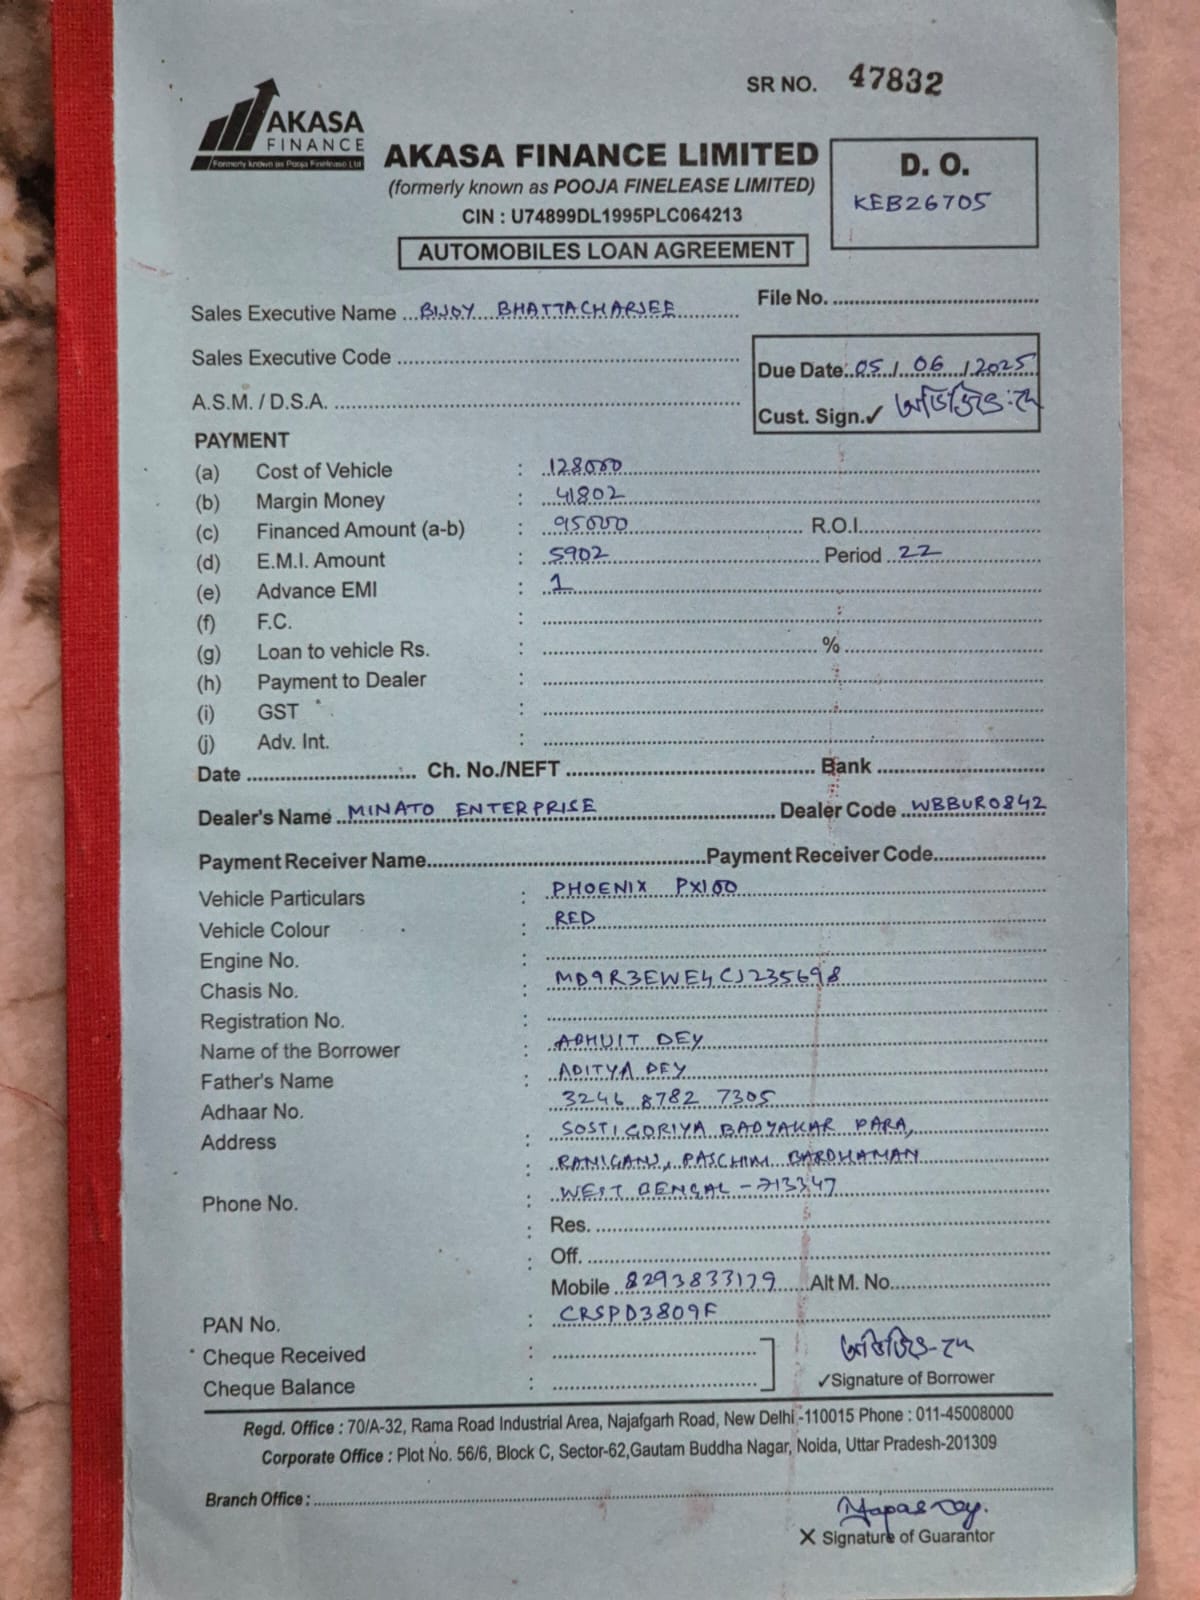 SR NO. 47832
AKASA
FINANCE
Formerly known as Pooja Finelease Ltd
AKASA FINANCE LIMITED
(formerly known as POOJA FINELEASE LIMITED)
CIN : U74899DL1995PLC064213
AUTOMOBILES LOAN AGREEMENT
D. O.
KEB26705
Sales Executive Name BIJOY BHATTACHARJEE
File No.
Sales Executive Code
Due Date 05/06/2025
A.S.M. / D.S.A.
Cust. Sign.✓ অভিজিৎ দে
PAYMENT
(a) Cost of Vehicle : 128000
(b) Margin Money : 41802
(c) Financed Amount (a-b) : 95000 R.O.I.
(d) E.M.I. Amount : 5902 Period 22
(e) Advance EMI : 1
(f) F.C. :
(g) Loan to vehicle Rs. : %
(h) Payment to Dealer :
(i) GST :
(j) Adv. Int. :
Date Ch. No./NEFT Bank
Dealer's Name MINATO ENTERPRISE Dealer Code WBBUR0842
Payment Receiver Name Payment Receiver Code
Vehicle Particulars : PHOENIX PX100
Vehicle Colour : RED
Engine No. :
Chasis No. : MD9R3EWE4CJ235698
Registration No. :
Name of the Borrower : ABHIJIT DEY
Father's Name : ADITYA DEY
Adhaar No. 3246 8782 7305
Address : SOSTIGORIYA BADYAKAR PARA,
: RANIGANJ, PASCHIM BARDHAMAN
Phone No. : WEST BENGAL - 713347
: Res.
: Off.
Mobile 8293833179 Alt M. No.
PAN No. : CRSPD3809F
Cheque Received :
Cheque Balance :
অভিজিৎ দে
✓Signature of Borrower
Regd. Office : 70/A-32, Rama Road Industrial Area, Najafgarh Road, New Delhi -110015 Phone : 011-45008000
Corporate Office : Plot No. 56/6, Block C, Sector-62,Gautam Buddha Nagar, Noida, Uttar Pradesh-201309
Branch Office :
Tapas Dey.
X Signature of Guarantor